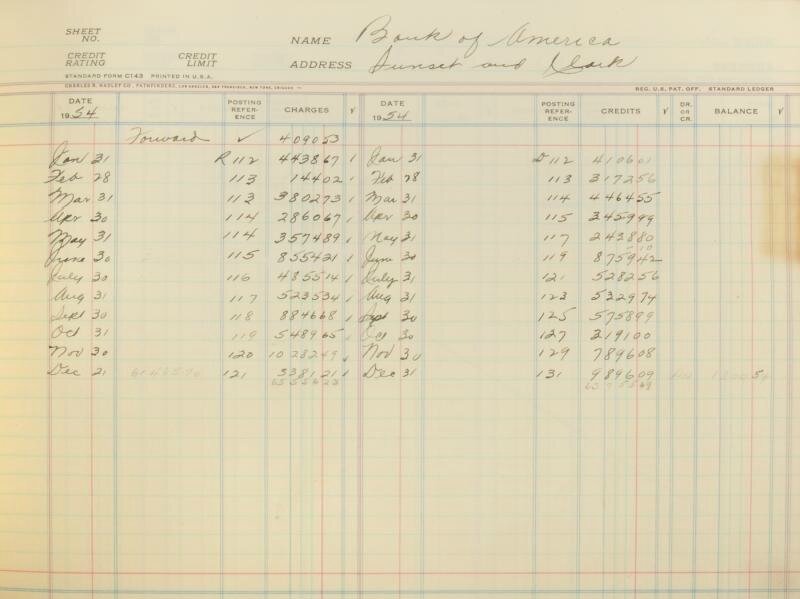 SHEET NO.
NAME Bank of America
CREDIT RATING CREDIT LIMIT
ADDRESS Sunset and Clark
STANDARD FORM C143 PRINTED IN U.S.A.
CHARLES R. HADLEY CO., PATHFINDERS, LOS ANGELES, SAN FRANCISCO, NEW YORK, CHICAGO REG. U.S. PAT. OFF. STANDARD LEDGER
DATE 1954 POSTING REFERENCE CHARGES √ DATE 1954 POSTING REFERENCE CREDITS √ DR. OR CR. BALANCE √
Forward ✓ 409053
Jan 31 R 112 443867 1 Jan 31 D 112 410601
Feb 28 113 14402 1 Feb 28 113 317256
Mar 31 113 380273 1 Mar 31 114 446455
Apr 30 114 286067 1 Apr 30 115 345999
May 31 114 357489 1 May 31 117 243880
June 30 115 855421 1 June 30 119 875942
July 30 116 485514 1 July 31 121 528256
Aug 31 117 523534 1 Aug 31 123 532974
Sept 30 118 884668 1 Sept 30 125 575899
Oct 31 119 548965 1 Oct 30 127 319100
Nov 30 120 1028249 Nov 30 129 789608
Dec 31 121 338121 1 Dec 31 131 989609